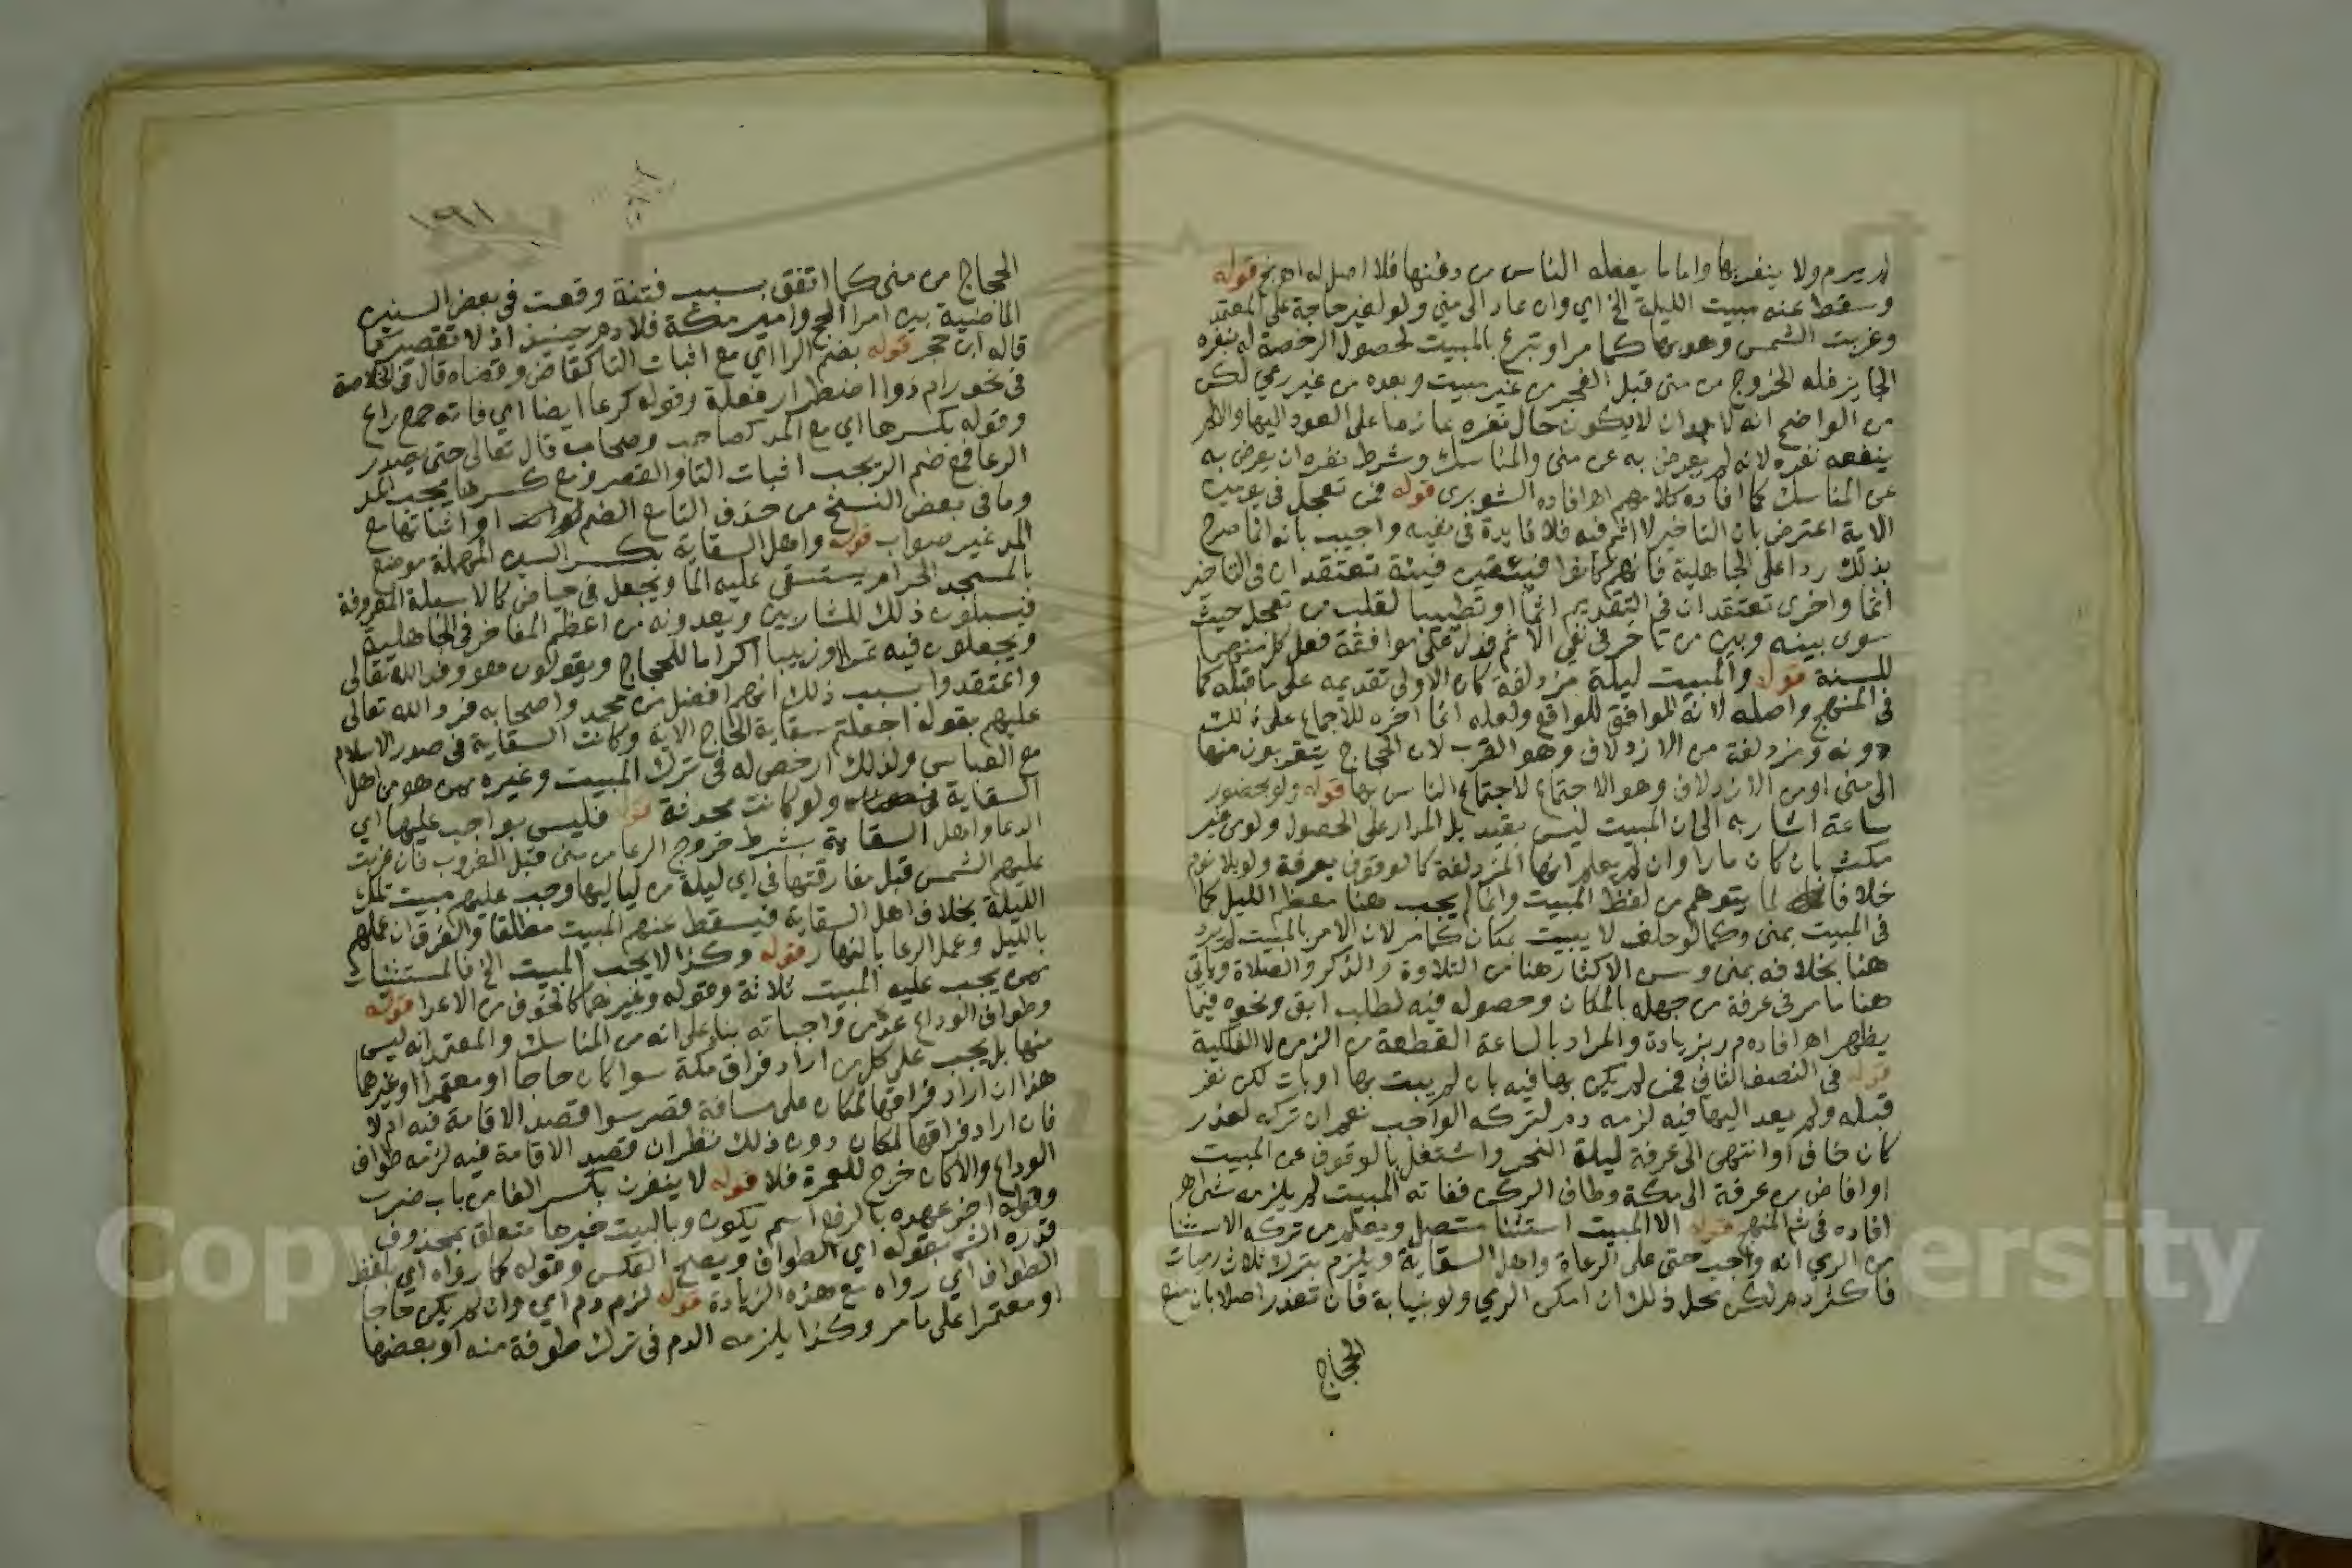 لم يرم ولا ينفر بها واما ما يفعله الناس من دفنها فلا اصل له اهـ قوله
وسقط عنه مبيت الليلة الخ اي وان عاد الى منى ولو لغير حاجة على المعتمد
وغربت الشمس وهو بها كما مر او تبرع بالمبيت لحصول الرخصة له بنفره
الجايز فله الخروج من منى قبل الفجر من غير مبيت وبعده من غير رمي لكن
من الواضح انه لا بد وان لا يكون حال نفره عازما على العود اليها والا لم
ينفعه نفره لانه لم يعرض به عن منى والمناسك وشرط نفره ان يعرض به
عن المناسك كما افاده كلامهم اهـ افاده الشوبرى قوله فمن تعجل في يومين
الاية اعترض بان التاخير لا اثم فيه فلا فايدة في نفيه واجيب بانه انما صرح
بذلك ردا على الجاهلية فانهم كانوا فيئتين فيئة تعتقد ان في التاخير
اثما واخرى تعتقد ان في التقديم اثما او تطييبا لقلب من تعجل حيث
سوى بينه وبين من تاخر في نفي الاثم فدل على موافقة فعل كل منهما
للسنة قوله والمبيت ليلة مزدلفة كان الاولى تقديمه على ما قبله كما
في المنهج واصله لانه الموافق للواقع ولعله انما اخره للاجماع على ذلك
دونه ومزدلفة من الازدلاف وهو القرب لان الحجاج يتقربون منها
الى منى او من الازدلاف وهو الاجتماع لاجتماع الناس بها قوله ولو بحضور
ساعة اشار به الى ان المبيت ليس بقيد بل المدار على الحصول ولو من غير
مكث بان كان مارا وان لم يعلم انها المزدلفة كما لو وقوف بعرفة ولو بلا نوم
خلافا لما يتوهم من لفظ المبيت وانما لم يجب هنا معظم الليل كما
في المبيت بمنى وكما لو حلف لا يبيت بمكان كما مر لان الامر بالمبيت لم يرد
هنا بخلافه بمنى وسن الاكثار هنا من التلاوة والذكر والصلاة وياتي
هنا ما مر في عرفة من جهله بالمكان وحصوله فيه لطلب ابق ونحوه فيما
يظهر اهـ افاده م ر بزيادة والمراد بالساعة القطعة من الزمن لا الفلكية
قوله في النصف الثاني فمن لم يكن بها فيه بان لم يبت بها او بات لكن نفر
قبله ولم يعد اليها فيه لزمه دم لتركه الواجب نعم ان تركه لعذر
كان خاف او انتهى الى عرفة ليلة النحر واشتغل بالوقوف عن المبيت
او افاض من عرفة الى مكة وطاف الركن ففاته المبيت لم يلزمه شي اهـ
افاده في شم المنهج قوله الا المبيت استثنا متصل ويعلم من تركه الاستثنا
من الرمي انه واجب حتى على الرعاة واهل السقاية ويلزم بترك ثلاث رميات
فاكثر دم لكن محل ذلك ان امكن الرمي ولو بنيابة فان تعذر اصلا بان منع
الحجاج
١٩٦١
الحجاج من منى كما اتفق بسبب فتنة وقعت في بعض السنين
الماضية بين امرا الحج وامير مكة فلا دم حينئذ اذ لا تقصير كما
قاله ابن حجر قوله بضم الرا اي مع اثبات التا كقاض وقضاه قال في الخلاصة
في نحو رام ذو اضطراد فعلة وقوله كرعا ايضا اي فانه جمع راع
وقوله بكسرها اي مع المد كصاحب وصحاب قال تعالى حتى يصدر
الرعا فمع ضم الر يجب اثبات التا والقصر ومع كسرها يجب المد
وما في بعض النسخ من حذف التا مع الضم او اثباتها مع
المد غير صواب قوله واهل السقاية بكسر السين المهملة موضع
بالمسجد الحرام يستسقى عليه الما ويجعل في حياض كالاسبلة المعروفة
فيسبلون ذلك للشاربين ويعدونه من اعظم المفاخر في الجاهلية
ويجعلون فيه تمرا وزبيبا اكراما للحجاج ويقولون هو وفد الله تعالى
واعتقدوا بسبب ذلك انهم افضل من محمد واصحابه فرد الله تعالى
عليهم بقوله اجعلتم سقاية الحاج الاية وكانت السقاية في صدر الاسلام
مع العباس ولذلك ارخص له في ترك المبيت وغيره ممن هو من اهل
السقاية ولو كانت محدثة قوله فليس بواجب عليها اي
الرعا واهل السقاية بشرط خروج الرعا من منى قبل الغروب فان غربت
عليهم الشمس قبل مفارقتها في اي ليلة من لياليها وجب عليهم مبيت تلك
الليلة بخلاف اهل السقاية فيسقط عنهم المبيت مطلقا والفرق ان عملهم
بالليل وعمل الرعا بالنهار قوله وكذا لا يجب المبيت الخ فالمستثنيات
ممن يجب عليه المبيت ثلاثة وقوله وغيرهما كالخوف من الاعدا قوله
وطواف الوداع عده من واجباته بنا على انه من المناسك والمعتمد انه ليس
منها بل يجب على كل من اراد فراق مكة سوا كان حاجا او معتمرا او غيرهما
هذا ان اراد فراقها لمكان على مسافة قصر سوا قصد الاقامة فيه ام لا
فان اراد فراقها لمكان دون ذلك نظر ان قصد الاقامة فيه لزمه طواف
الوداع والا كان خرج للعمرة فلا قوله لا ينفرن بكسر الفا من باب ضرب
وقوله اخر عهده بالرفع اسم يكون وبالبيت خبرها متعلق بمحذوف
قدره الشم بقوله اي الطواف ويصح العكس وقوله كما رواه اي بلفظ
الطواف اي رواه مع هذه الزيادة قوله لزم دم اي وان لم يكن حاجا
او معتمرا على ما مر وكذا يلزمه الدم في ترك طوفة منه او بعضها